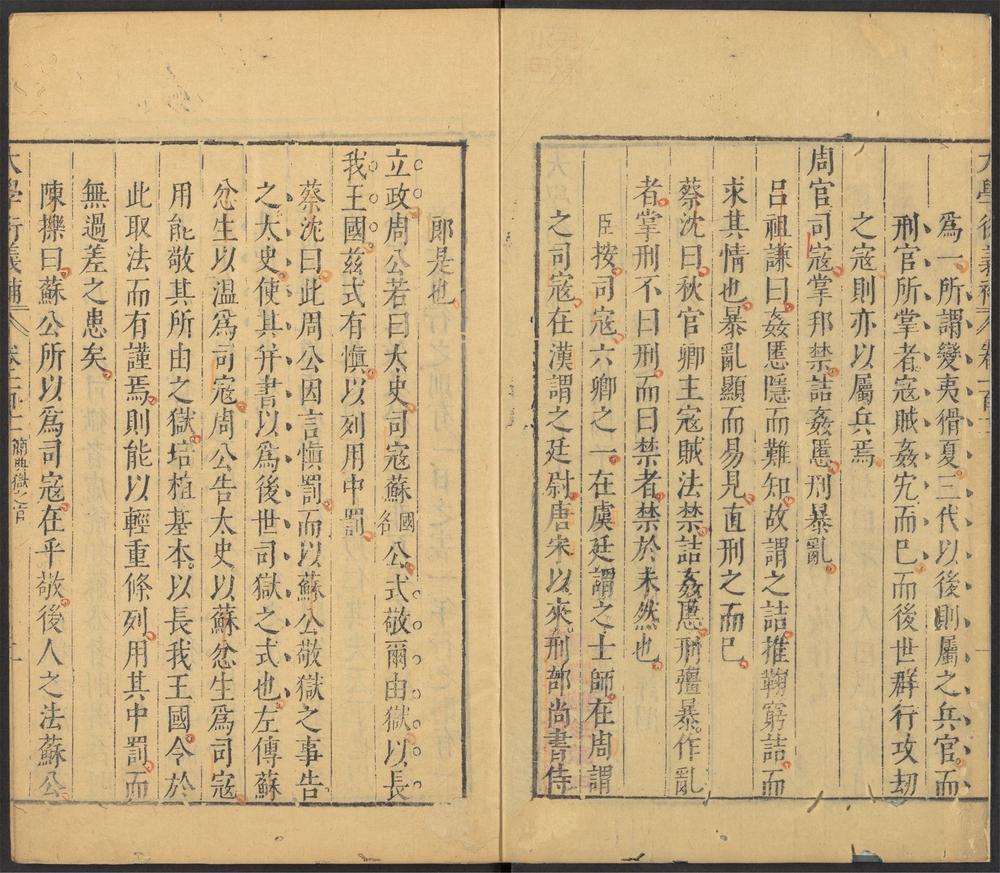 為一所謂變夷猾夏三代以後則屬之兵官而
刑官所掌者寇賊姦宄而已而後世群行攻刼
之寇則亦以屬兵焉
周官司寇掌邦禁詰姦慝刑暴亂
呂祖謙曰姦慝隱而難知故謂之詰推鞠窮詰而
求其情也暴亂顯而易見直刑之而已
蔡沈曰秋官卿主寇賊法禁詰姦慝刑彊暴作亂
者掌刑不曰刑而曰禁者禁於未然也
臣按司寇六卿之一在虞廷謂之士師在周謂
之司寇在漢謂之廷尉唐宋以來刑部尚書侍
郎是也
立政周公若曰太史司寇蘇國名公式敬爾由獄以長
我王國兹式有慎以列用中罰
蔡沈曰此周公因言慎罰而以蘇公敬獄之事告
之太史使其并書以為後世司獄之式也左傳蘇
忿生以溫為司寇周公告太史以蘇忿生為司寇
用能敬其所由之獄培植基本以長我王國令於
此取法而有謹焉則能以輕重條列用其中罰而
無過差之患矣
陳櫟曰蘇公所以為司寇在乎敬後人之法蘇公
大學衍義補 簡典獄之官